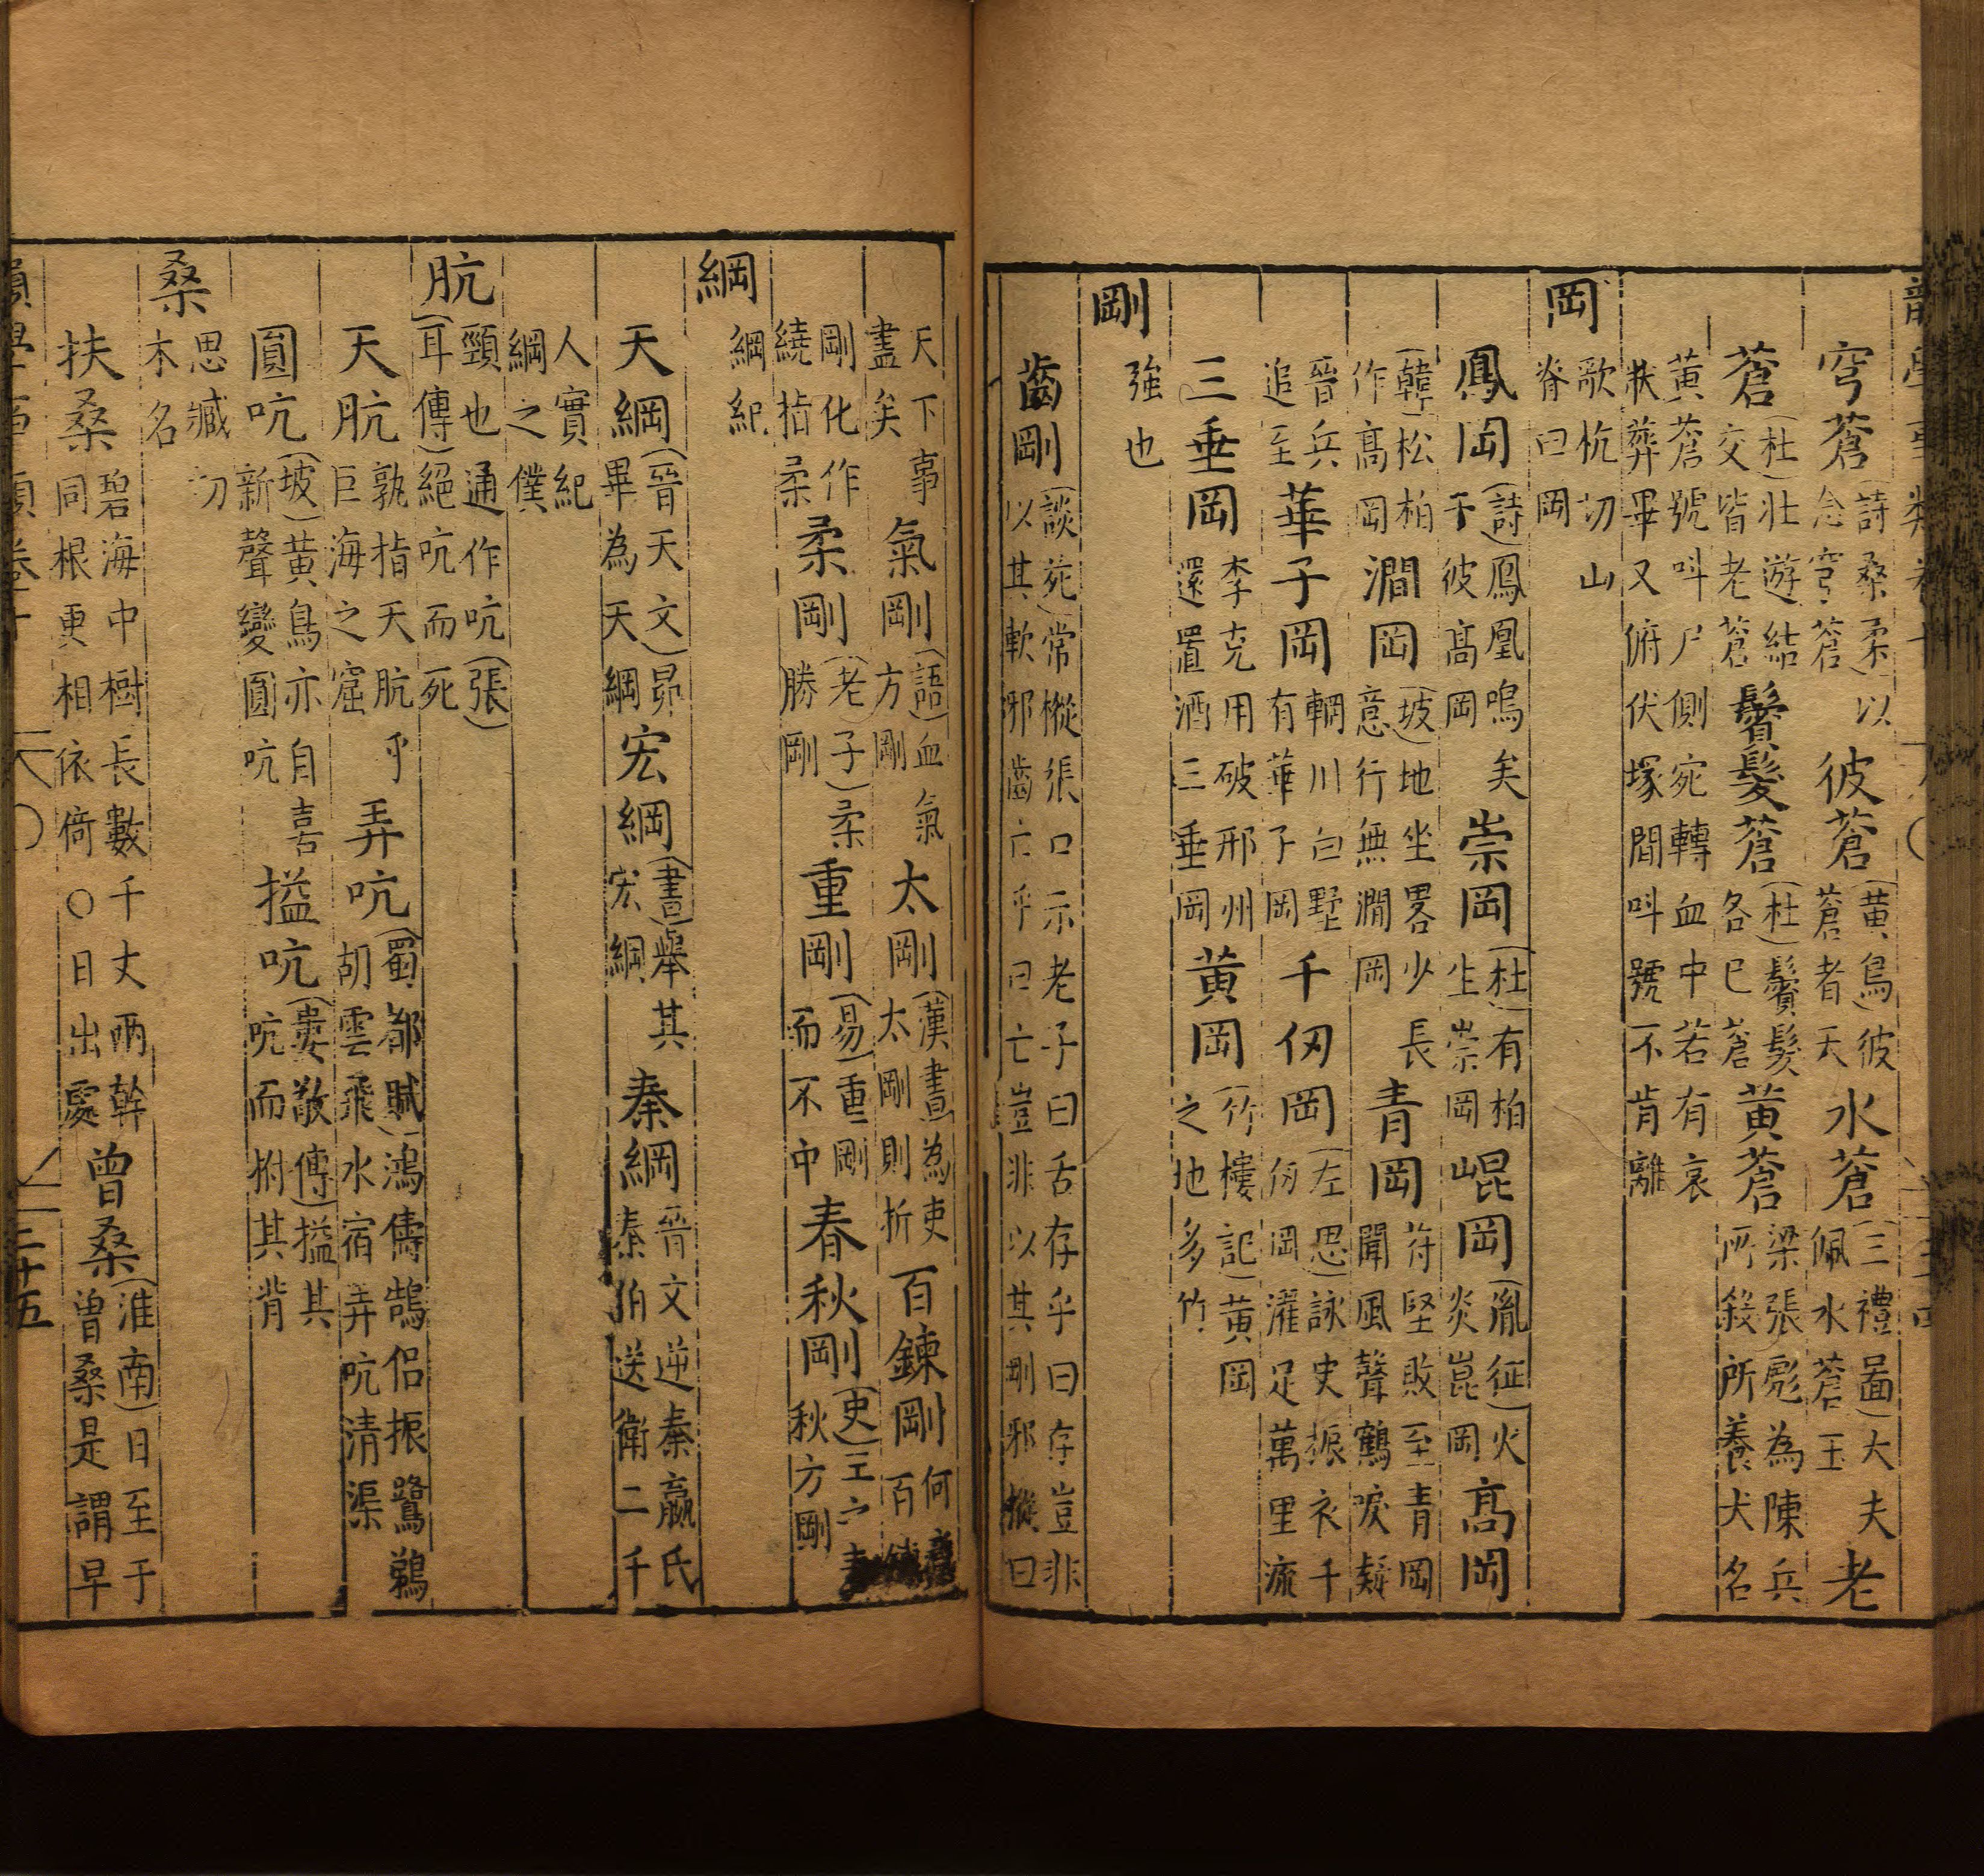 穹蒼(詩桑柔)以念穹蒼彼蒼(黃鳥)彼蒼者天水蒼(三禮圖)大夫佩水蒼玉老
蒼(杜)壯遊結交皆老蒼鬢髮蒼(杜)鬢髮各已蒼黃蒼梁張彪為陳兵所殺所養犬名
黃蒼號叫尸側宛轉血中若有哀狀葬畢又俯伏塚間叫號不肯離
岡歌杭切山脊曰岡
鳳岡(詩)鳳凰鳴矣于彼髙岡崇岡(杜)有柏生崇岡崐岡(胤征)火炎崑岡髙岡
(韓)松柏作髙岡澗岡(坡)地坐畧少長意行無澗岡青岡苻堅敗至青岡聞風聲鶴唳疑
晉兵追至華子岡輞川白墅有華子岡千仞岡(左思)詠史振衣千仞岡濯足萬里流
三垂岡李克用破邢州還置酒三垂岡黃岡(竹樓記)黃岡之地多竹
剛強也
齒剛(談苑)常樅張口示老子曰舌存乎曰存豈非以其軟邪齒亡乎曰亡豈非以其剛邪樅曰
天下事盡矣氣剛(語)血氣方剛太剛(漢書)為吏太剛則折百鍊剛何意百鍊
剛化作繞指柔柔剛(老子)柔勝剛重剛(易)重剛而不中春秋剛(吏)秋方剛
綱綱紀
天綱(晉天文)昴畢為天綱宏綱(書)舉其宏綱秦綱晉文逆秦嬴氏秦伯送衛二千
人實紀綱之僕
肮頸也通作吭(張耳傳)絕吭而死
天肮孰指天肮乎巨海之窟弄吭(蜀都賦)鴻儔鵠侶振鷺鵜胡雲飛水宿弄吭清渠
圓吭(坡)黃鳥亦自喜新聲變圓吭搤吭(婁敬傳)搤其吭而拊其背
桑思臧切木名
扶桑碧海中樹長數千丈兩幹同根更相依倚○日出處曾桑(淮南)日至于曾桑是謂早
二十五